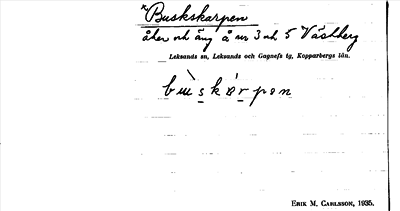 *Buskskarpen
åker och äng å nr 3 och 5 Västberg
Leksands sn, Leksands och Gagnefs tg, Kopparbergs län.
ERIK M. CARLSSON, 1935.